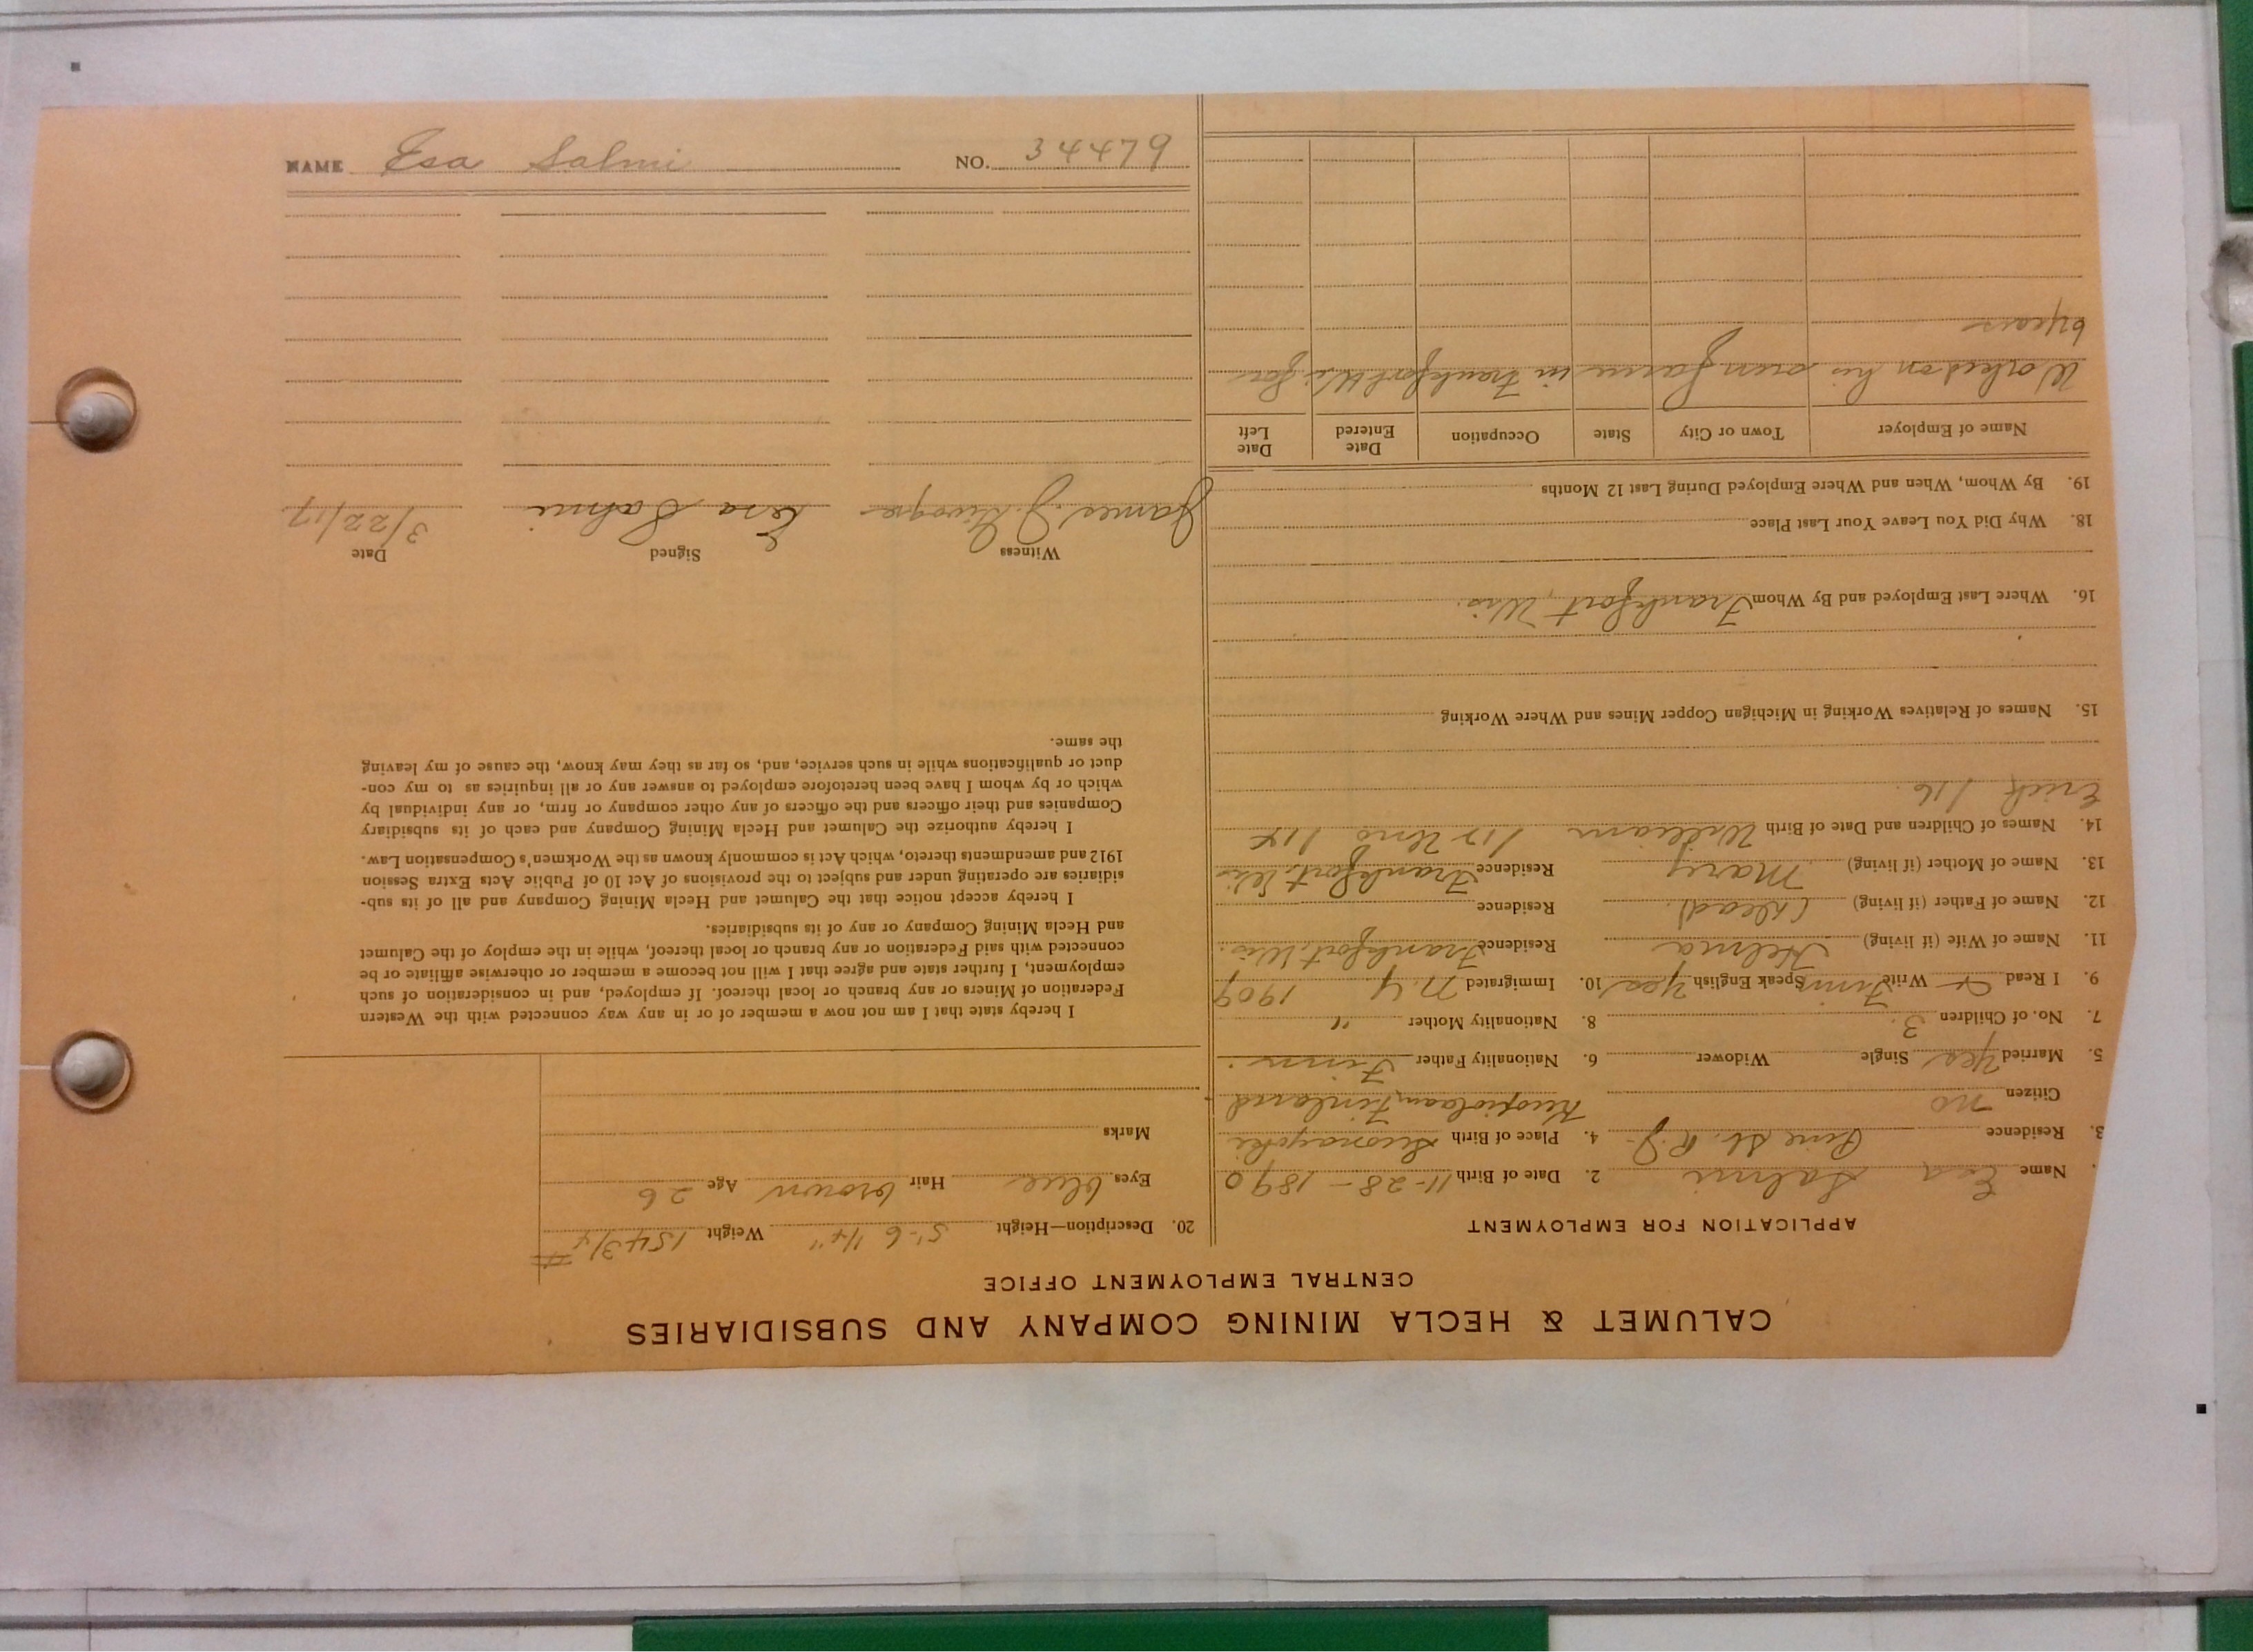 NAME Esa Salmi NO. 34479
CALUMET & HECLA MINING COMPANY AND SUBSIDIARIES
CENTRAL EMPLOYMENT OFFICE
APPLICATION FOR EMPLOYMENT
Name Esa Salmi 2. Date of Birth 11-28-1890
3. Residence Pine St. R.J. 4. Place of Birth
Citizen no Finland
5. Married Yes Single Widower 6. Nationality Father Finn.
7. No. of Children 3. 8. Nationality Mother "
9. I Read Write Finn Speak English Yes 10. Immigrated N.Y. 1909
11. Name of Wife (if living) Helma Residence Frankfort, Wis.
12. Name of Father (if living) (dead). Residence
13. Name of Mother (if living) Mary Residence Frankfort, Wis
14. Names of Children and Date of Birth William Uno
Erick /16.
15. Names of Relatives Working in Michigan Copper Mines and Where Working
16. Where Last Employed and By Whom Frankfort, Wis.
18. Why Did You Leave Your Last Place
19. By Whom, When and Where Employed During Last 12 Months
Name of Employer Town or City State Occupation Date Entered Date Left
Worked on his own farm in Frankfort Wis for
6 years
20. Description—Height 5'-6 1/4" Weight 154 3/4 #
Eyes blue Hair brown Age 26
Marks
I hereby state that I am not now a member of or in any way connected with the Western
Federation of Miners or any branch or local thereof. If employed, and in consideration of such
employment, I further state and agree that I will not become a member or otherwise affiliate or be
connected with said Federation or any branch or local thereof, while in the employ of the Calumet
and Hecla Mining Company or any of its subsidiaries.
I hereby accept notice that the Calumet and Hecla Mining Company and all of its sub-
sidiaries are operating under and subject to the provisions of Act 10 of Public Acts Extra Session
1912 and amendments thereto, which Act is commonly known as the Workmen's Compensation Law.
I hereby authorize the Calumet and Hecla Mining Company and each of its subsidiary
Companies and their officers and the officers of any other company or firm, or any individual by
which or by whom I have been heretofore employed to answer any or all inquiries as to my con-
duct or qualifications while in such service, and, so far as they may know, the cause of my leaving
the same.
Witness Signed Date
James J. Esa Salmi 3/22/17